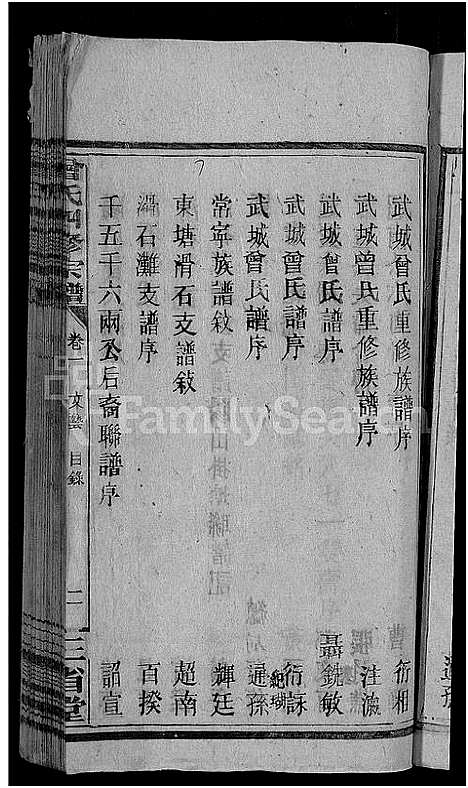 武城曾氏重修族譜序 衍相
武城曾氏重修族譜序 注瀛
武城曾氏譜序 聶銑敏
武城曾氏譜序 衍詠
武城曾氏譜序 紀瑚 暹孫
常寧族譜敘 輝廷
東塘滑石支譜敘 超南
滑石灘支譜序 百揆
千五千六兩公后裔聯譜序 詔宣
曾氏四修宗譜 卷一 文藝 目錄 二 三省堂
FamilySearch